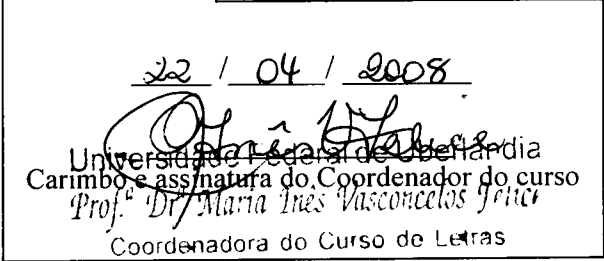 22 / 04 / 2008
Universidade Federal de Uberlândia
Carimbo e assinatura do Coordenador do curso
Prof.ª Drª Maria Inês Vasconcelos Felice
Coordenadora do Curso de Letras